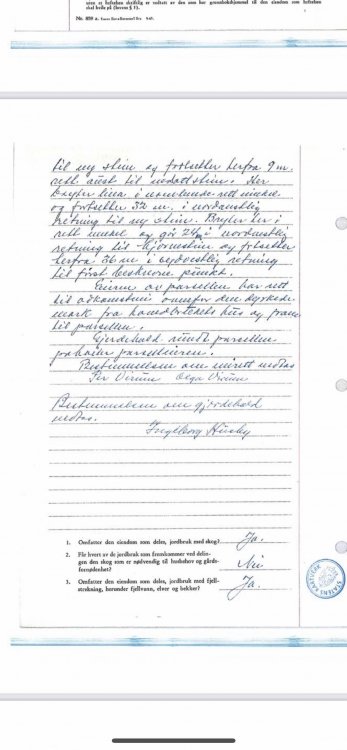 uten at heftelsen skriftlig er vedtatt av den som har grunnbokshjemmel til den eiendom som heftelsen
skal hvile på (lovens § 1).
Nr. 859
til ny stein og fortsetter herfra 9 m.
rett aust til nedsatt stein. Her
bryter lina i nærmeste rett vinkel
og fortsetter 32 m. i nordaustlig
retning til ny stein. Bryter her i
rett vinkel og går 24 m i nordvestlig
retning til hjørnestein og fortsetter
herfra 36 m. i sydvestlig retning
til først beskrevne punkt.
Eieren av parsellen har rett
til adkomstvei ovenfor den dyrkede
mark fra hovedbrukets hus og fram
til parsellen.
Gjerdehold rundt parsellen
påhviler parselleieren.
Bestemmelsen om veirett vedtas
Per Virum Olga Virum
Bestemmelsen om gjerdehold
vedtas.
Ingeborg Husby
1. Omfatter den eiendom som deles, jordbruk med skog? Ja.
2. Får hvert av de jordbruk som fremkommer ved delin-
gen den skog som er nødvendig til husbehov og gårds-
fornødenhet? Nei
3. Omfatter den eiendom som deles, jordbruk med fjell-
strekning, herunder fjellvann, elver og bekker? Ja.
STATENS KARTVERK